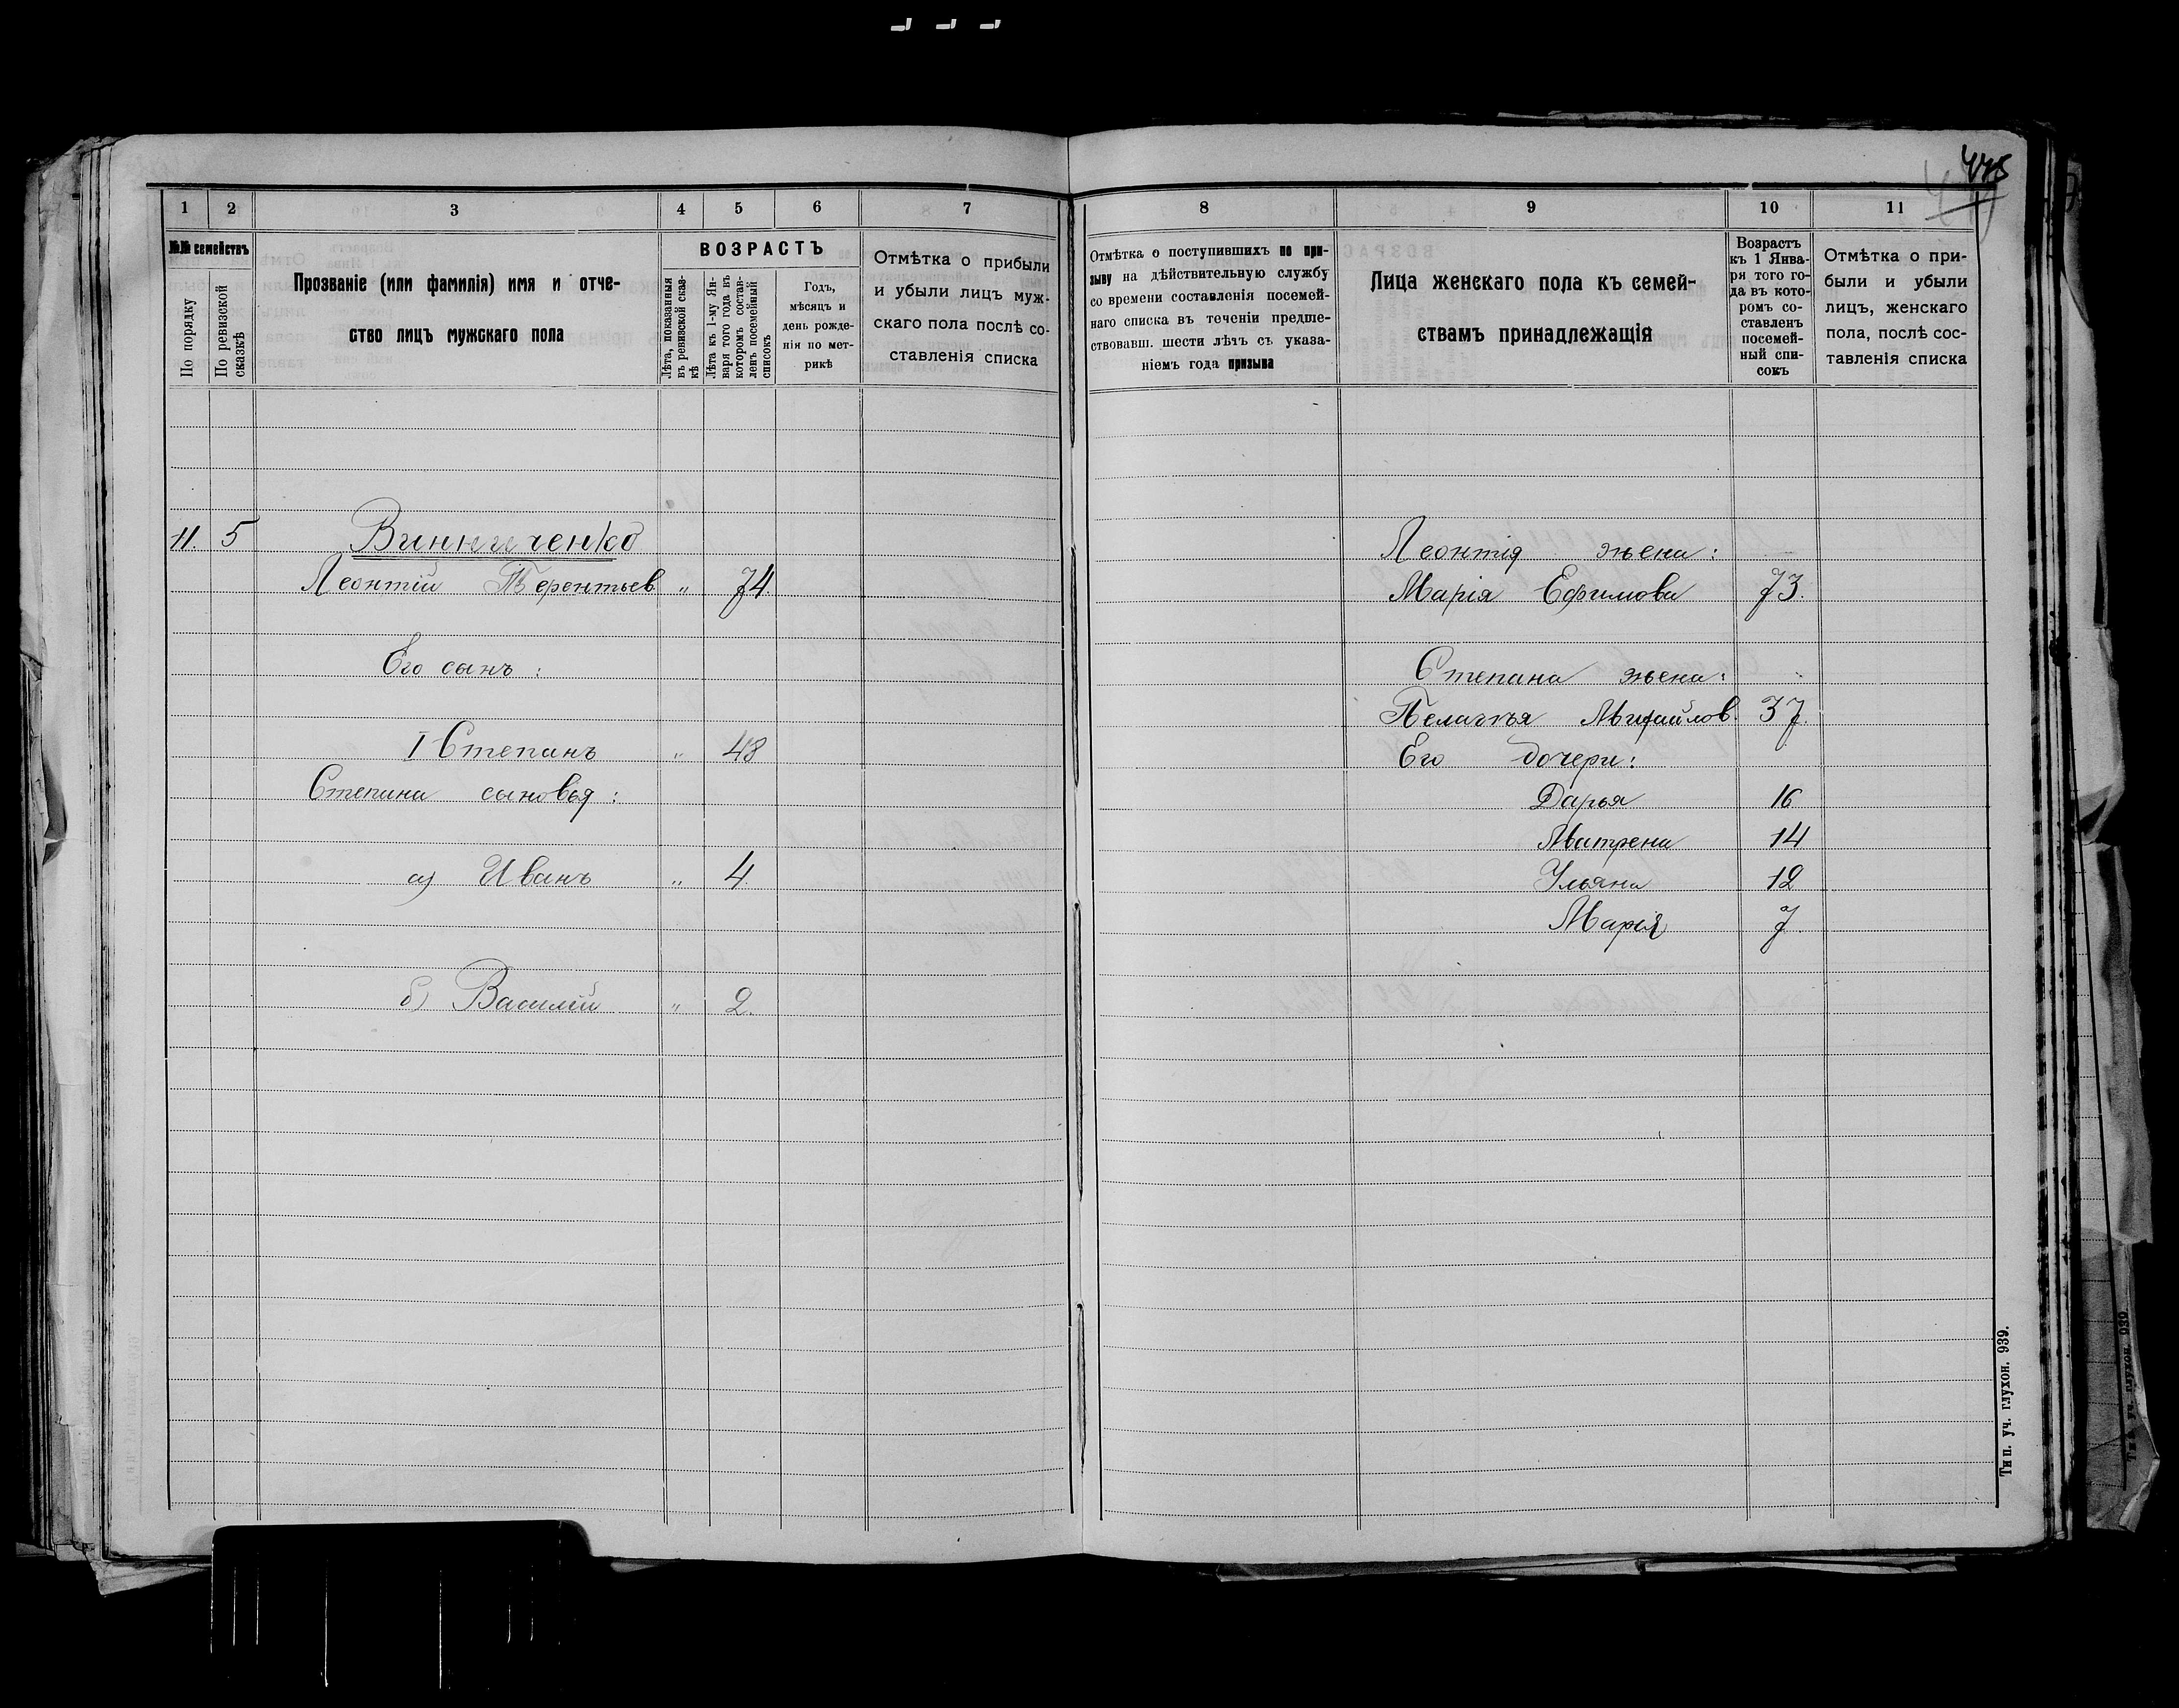 445
1 2 3 4 5 6 7
№№ семействъ
По порядку
По ревизской сказкѣ
Прозваніе (или фамилія) имя и отче-
ство лицъ мужскаго пола
ВОЗРАСТЪ
Лѣта, показанныя
въ ревизской сказ-
кѣ
Лѣта къ 1-му Ян-
варя того года въ
которомъ состав-
ленъ посемейный
списокъ
Годъ,
мѣсяцъ и
день рожде-
нія по мет-
рикѣ
Отмѣтка о прибыли
и убыли лицъ муж-
скаго пола послѣ со-
ставленія списка
11. 5 Винниченко
Леонтій Терентьев " 74.
Его сынъ:
1 Степанъ " 43
Степана сыновья:
а) Иванъ " 4.
б) Василій " 2.
8 9 10 11
Отмѣтка о поступившихъ по при-
зыву на дѣйствительную службу
со времени составленія посемей-
наго списка въ теченіи предше-
ствовавш. шести лѣтъ съ указа-
ніемъ года призыва
Лица женскаго пола къ семей-
ствамъ принадлежащія
Возрастъ
къ 1 Янва-
ря того го-
да въ кото-
ромъ со-
ставленъ
посемей-
ный спи-
сокъ
Отмѣтка о при-
были и убыли
лицъ, женскаго
пола, послѣ сос-
тавленія списка
Леонтія жена:
Марія Ефимова 73.
Степана жена:
Пелагья Михайлов. 37.
Его дочери:
Дарья 16
Матрена 14
Ульяна 12
Марія 7.
Тип. уч. глухон. 939.